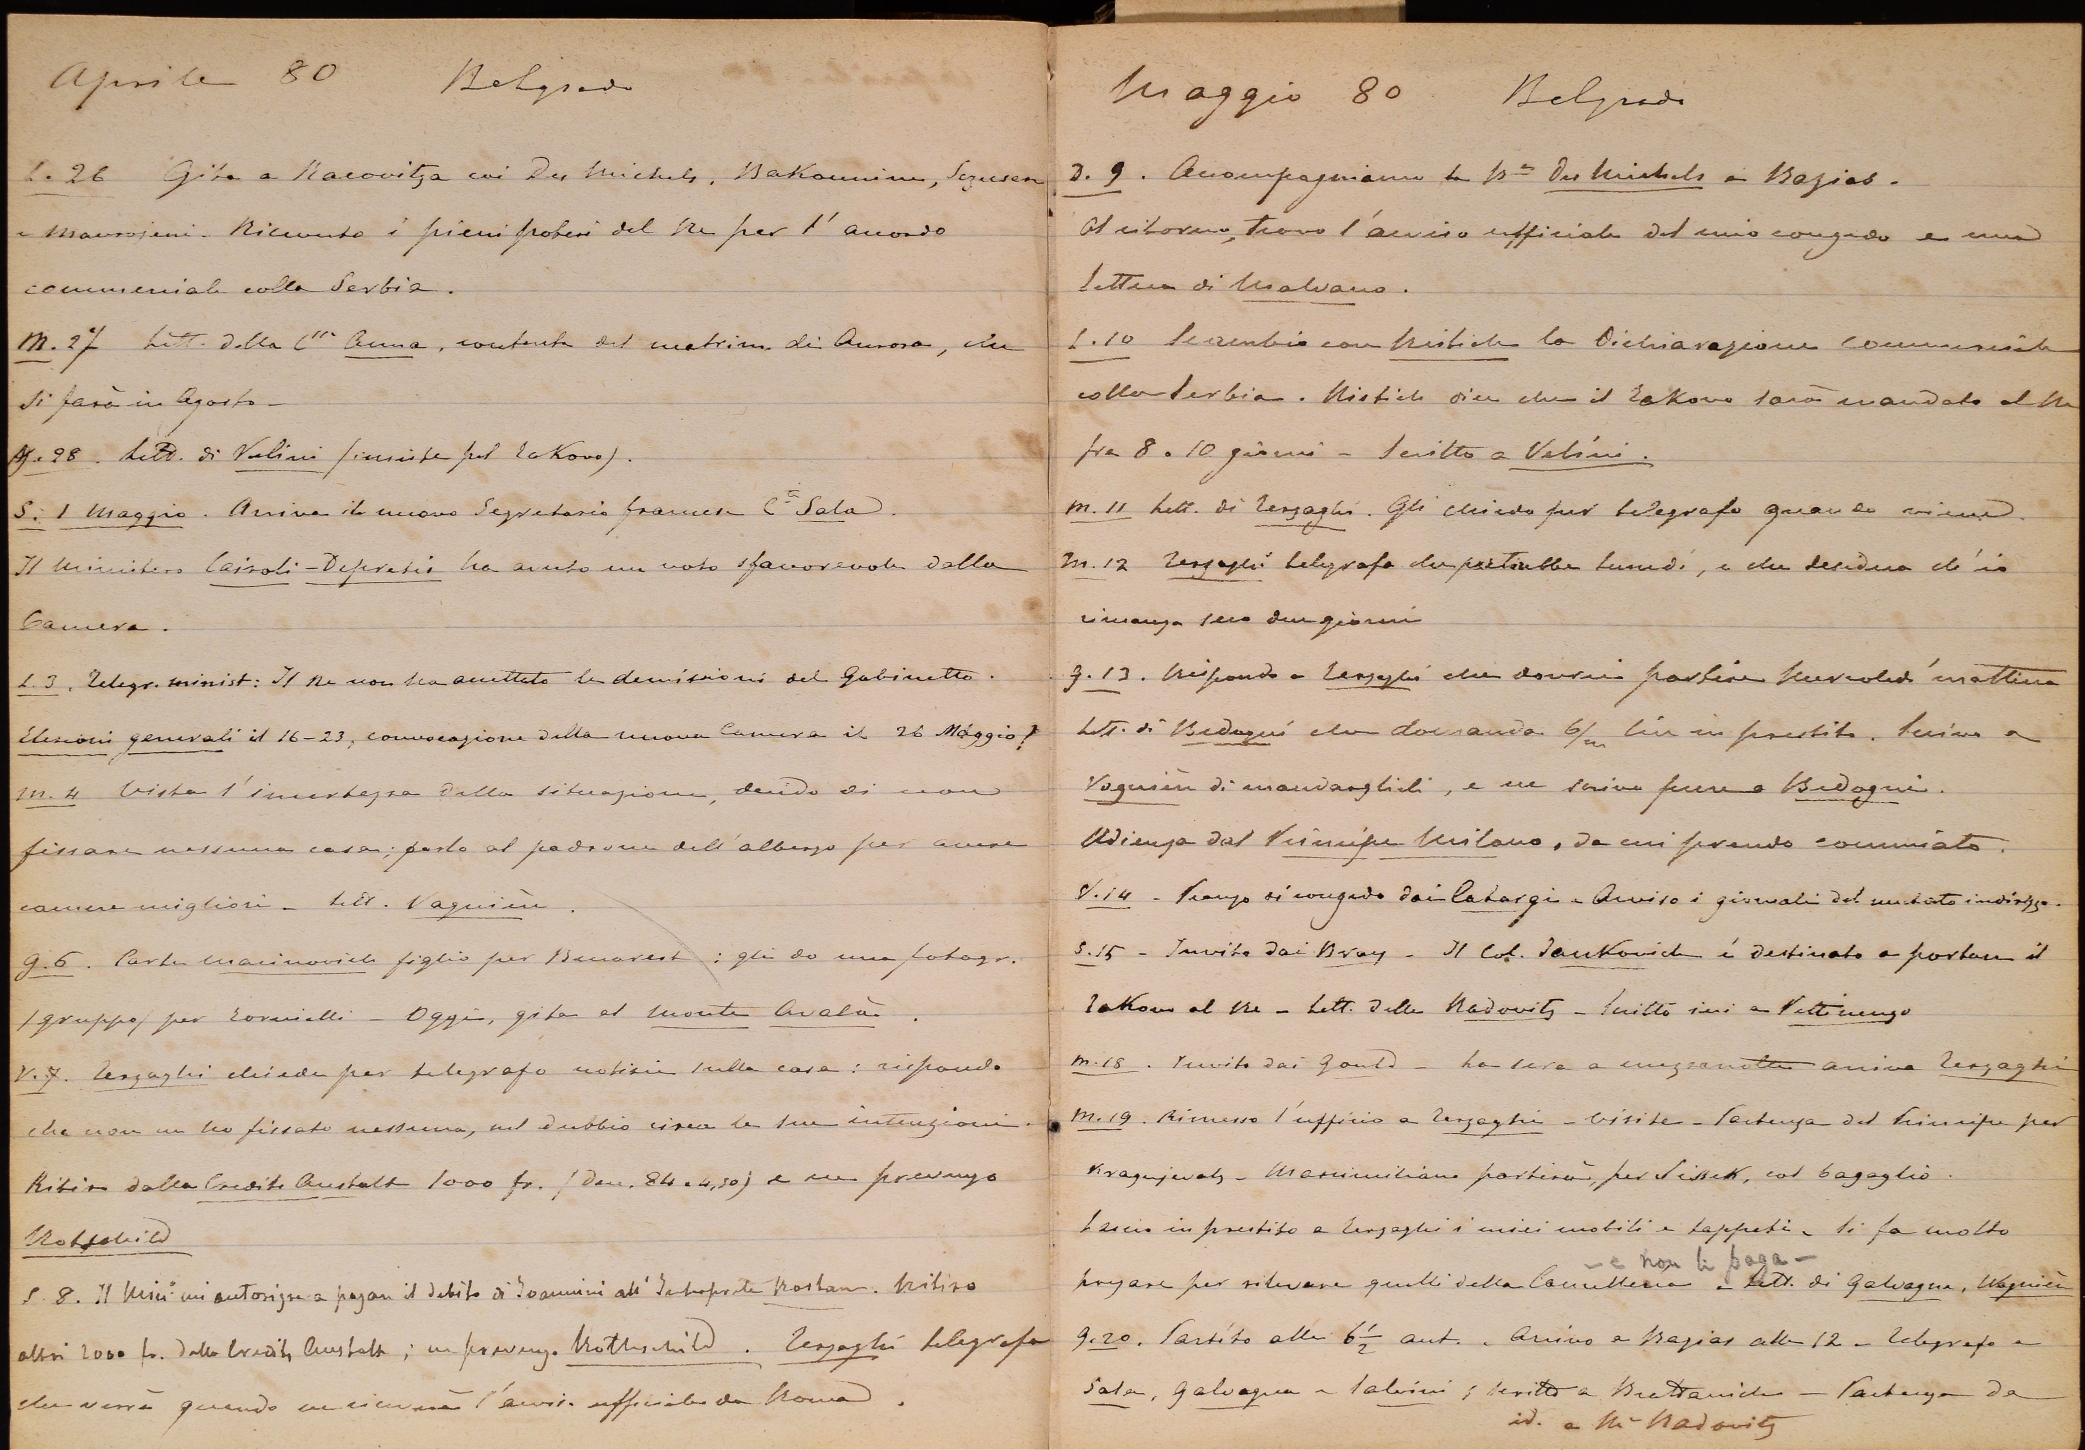 Aprile 80 Belgrado
L. 26 Gita a Racovitza coi Des Michels, Bakounine,
e Maurojeni. Ricevuto i pieni poteri del Re per l'accordo
commerciale colla Serbia.
M. 27 Lett. della C.ssa Anna, contenta del matrim. di Aurora, che
si farà in Agosto -
M. 28. Lett. di Velini (insiste pel Takovo).
S. 1 Maggio. Arriva il nuovo Segretario francese C.te Sala.
Il Ministero Cairoli-Depretis ha avuto un voto sfavorevole dalla
Camera.
L. 3. Telegr. minist: Il Re non ha accettato le demissioni del Gabinetto.
Elezioni generali il 16-23, convocazione della nuova Camera il 26 Maggio!
M. 4 Vista l'incertezza della situazione, decido di non
fissare nessuna casa; parlo al padrone dell'albergo per avere
camere migliori - Lett. Vagnière.
G. 6. Parte Marinovich figlio per Bucarest: gli do una fotogr.
(gruppo) per Tornielli - Oggi, gita al monte Avala.
V. 7. Terzaghi chiede per telegrafo notizie sulla casa: rispondo
che non ne ho fissato nessuna, nel dubbio circa le sue intenzioni.
Ritiro dalla Credit Anstalt 1000 fr. (den. 84 a 4,50) e ne prevengo
Rotschild
S. 8. Il Min.o mi autorizza a pagare il debito di Joannini all'Interprete Rostan. Ritiro
altri 2000 fr. dalla Credit Anstalt; ne prevengo Rothschild. Terzaghi telegrafa
che verrà quando ne riceverà l'avviso ufficiale da Roma.
Maggio 80 Belgrado
D. 9. Accompagniamo la B.ne Des Michels a Bazias.
Al ritorno, trovo l'avviso ufficiale del mio congedo e una
lettera di Malvano.
L. 10 Scambio con Ristich la Dichiarazione commerciale
colla Serbia. Ristich dice che il Takovo sarà mandato al Re
fra 8 o 10 giorni - Scritto a Velini.
M. 11 Lett. di Terzaghi. Gli chiedo per telegrafo quando viene.
M. 12 Terzaghi telegrafa che partirebbe lunedì, e che desidera ch'io
rimanga seco due giorni
G. 13. Rispondo a Terzaghi che dovrei partire Mercoledì mattina
Lett. di Bedogni che domanda 6/m lire in prestito. Scrivo a
Vagnière di mandarglieli, e ne scrivo pure a Bedogni.
Udienza dal Principe Milano, da cui prendo commiato.
V. 14 - Pranzo di congedo dai Catargi - Avviso i giornali del mutato indirizzo.
S. 15 - Invito dai Bray - Il Col. Jankovich è destinato a portare il
Takovo al Re - Lett. della Radovitz - Scritto ieri a Pettinengo
M. 18. Invito dai Gould - La sera a mezzanotte arriva Terzaghi
M. 19. Rimesso l'ufficio a Terzaghi - Visite - Partenza del Principe per
Kragujevatz - Massimiliano partirà, per Sissek, col bagaglio.
Lascio in prestito a Terzaghi i miei mobili e tappeti - Si fa molto
- e non li paga -
pregare per rilevare quelli della Cancelleria - Lett. di Galvagna, Vagnière
G. 20. Partito alle 6 1/2 ant. - Arrivo a Bazias alle 12 - Telegrafo a
Sala, Galvagna e Salvini; scritto a Brettanich - Partenza da
id. a M.e Radovitz